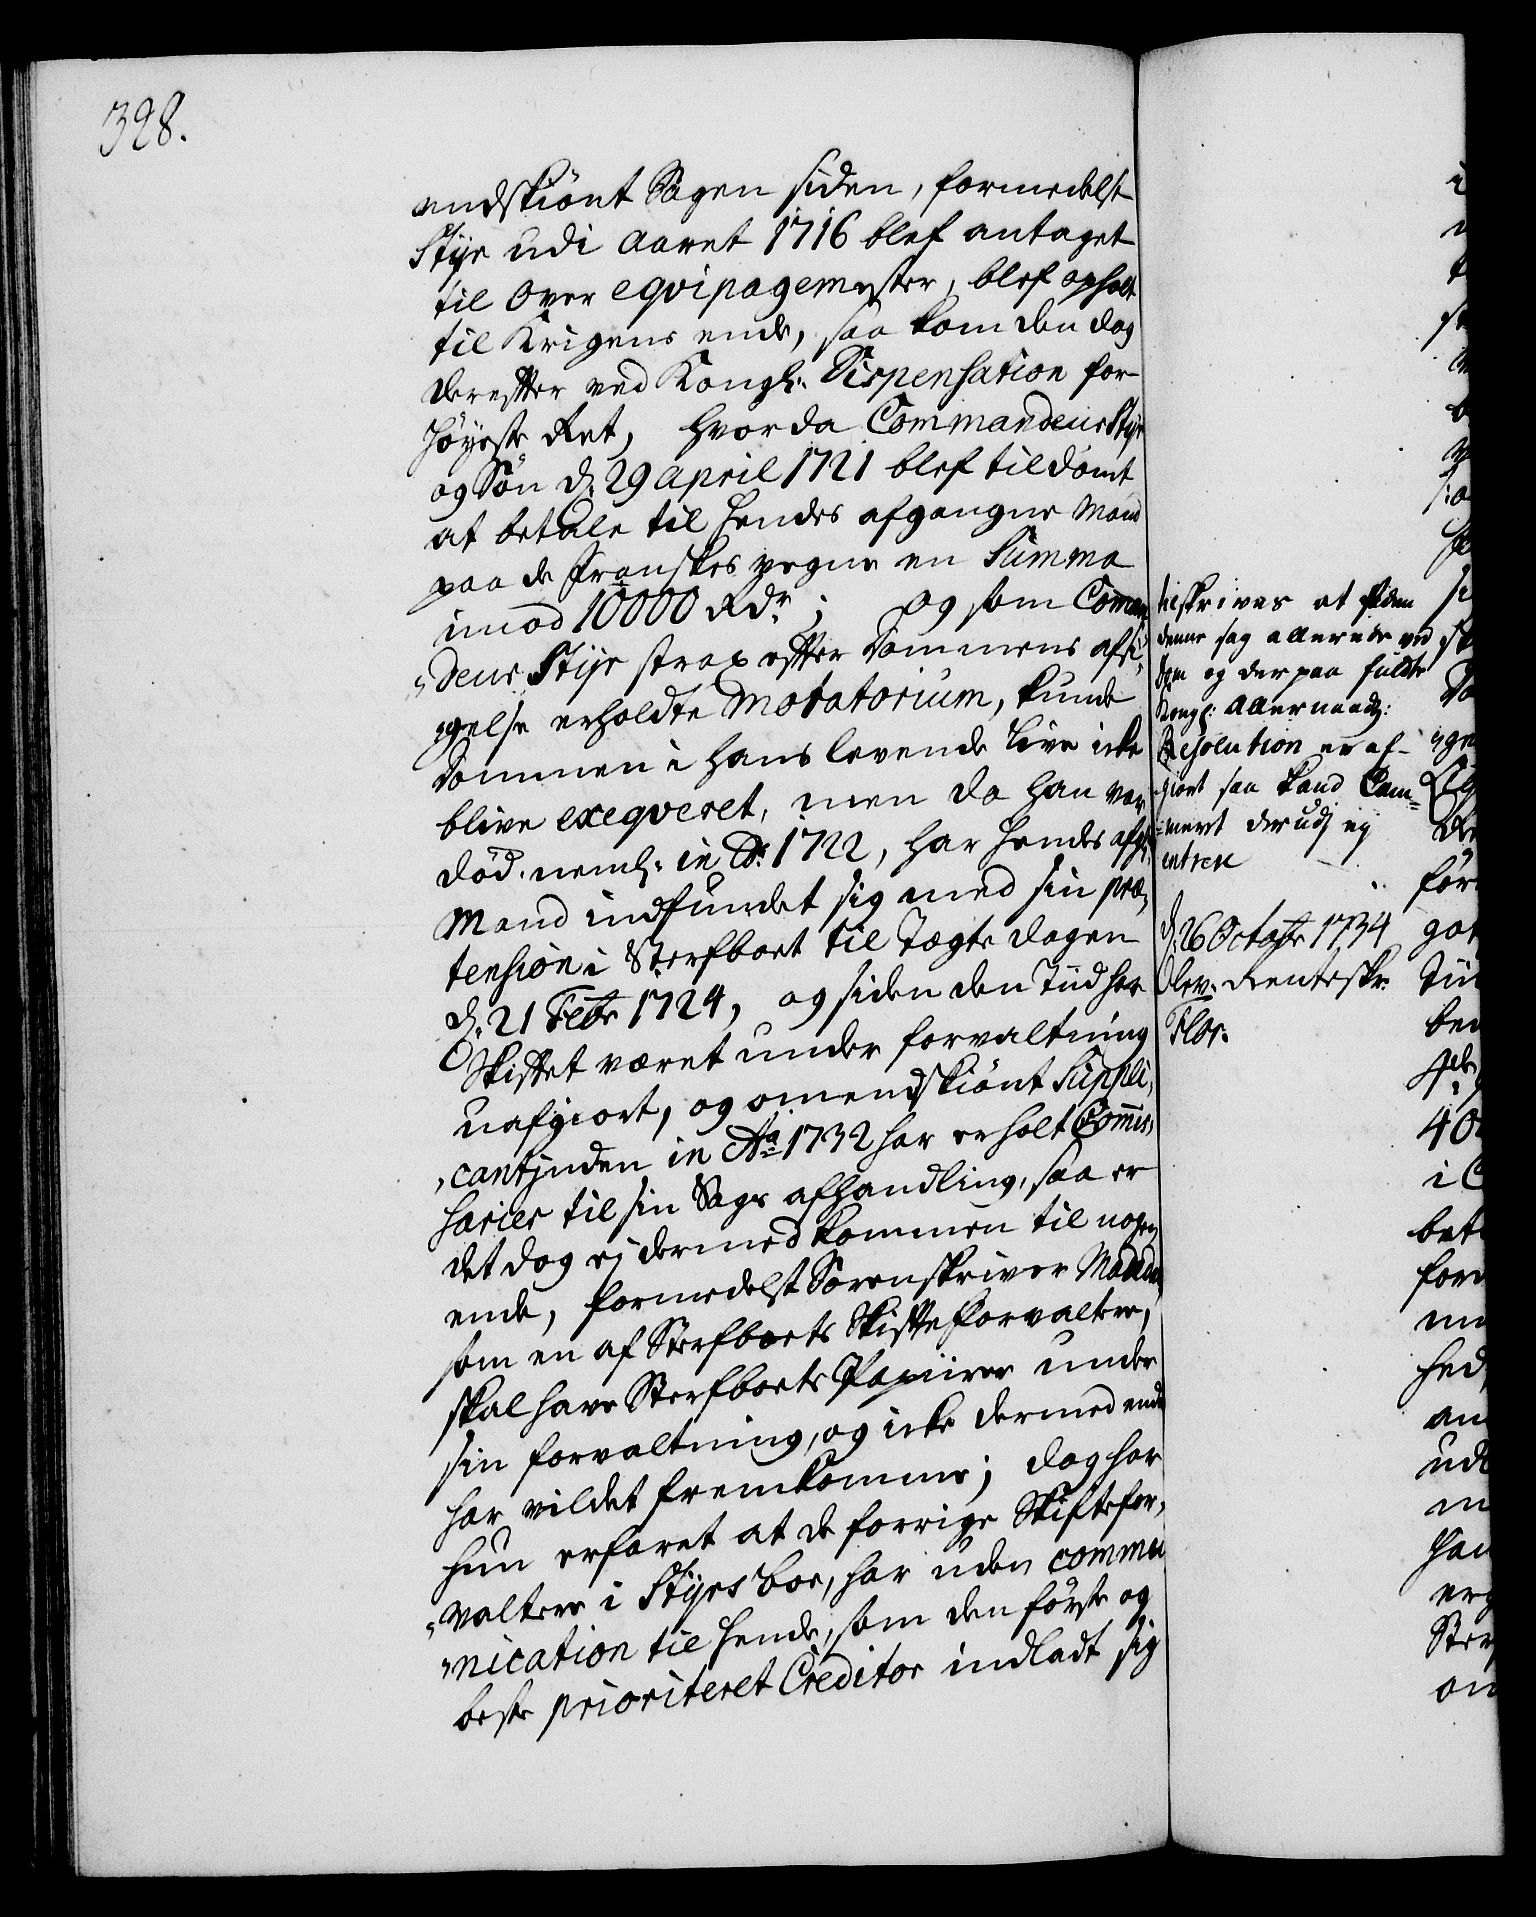 328.
endskiönt Sagen siden, formedelst
Stije udi Aaret 1716 blef antaget
til Over equipagemester, blef opholt
til Krigens ende, saa kom den dog
derefter ved Kongl: Dispensation for
Höyeste Ret, hvor da Commandeur Stije
og Sön d. 29 April 1721 blef tildömt
at betale til hendes afgangne Mand
paa de Franskes vegne en Summa
imod 10000 Rdr; og som Comman
"deur Stije strax efter Dommens afsi,
"gelse erholdte Moratorium, kunde
Dommen i hans levende live icke
blive exequeret, men da han var
död. neml: in Ao 1722, har hendes afg:
Mand indfundet sig med sin præ,
tension i Sterfboet til Tægte dagen
d. 21 Febr 1724, og siden den Tiid har
Skiftet været under forvaltning
uafgiort, og omendskiönt Suppli,
"cantinden in Ao 1732 har erholt Commis,
sarier til sin Sags afhandling, saa er
det dog ej dermed kommen til nogen
ende, formedelst Sorenskriver
som en af Sterfboets Skifteforvaltere,
skal have Sterfboets Papiirer under
sin forvaltning, og icke dermed endnu
har vildet fremkomme; dog har
hun erfaret at de forrige Skiftefor,
"valtere i Stijes boe, har uden commu
"nication til hende, som den förste og
beste prioriteret Creditor indladt sig
tilskrives at siden
denne sag allerede ved
dom og derpaa fuldte
Kongl: Allernaadg:
Resolution er af-
giort saa kand Cam=
=meret derudj ej
entrere
d. 26 Octobr 1734
Olev. Renteskr.
Flor.